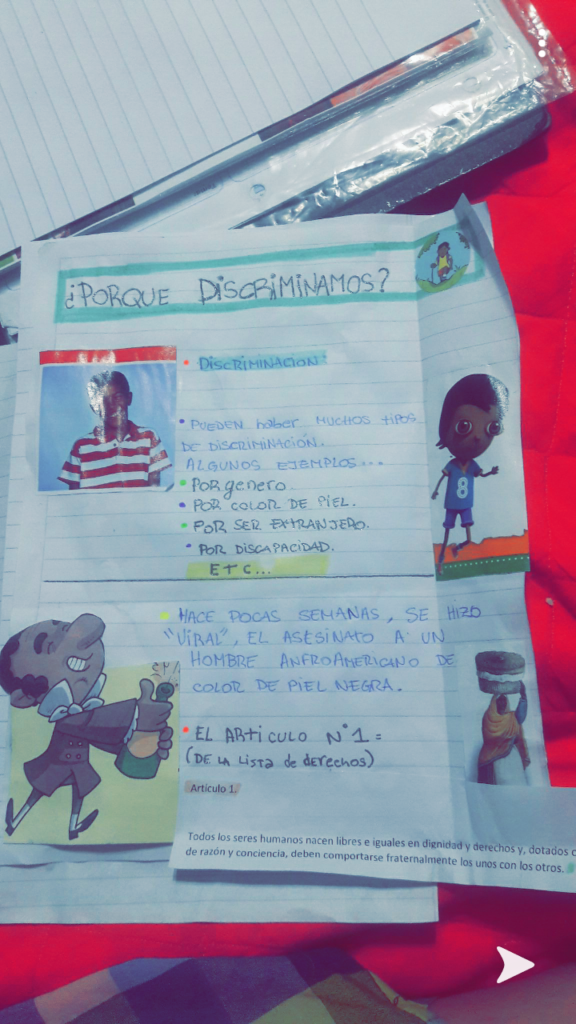 ¿PORQUE DISCRIMINAMOS?
• DISCRIMINACION
• PUEDEN haber MUCHOS TIPOS
DE DISCRIMINACIÓN.
ALGUNOS EJEMPLOS...
• POR genero.
• POR COLOR DE PIEL.
• POR SER EXTRANJERO.
• POR DISCAPACIDAD.
ETC...
• HACE POCAS SEMANAS, SE HIZO
"VIRAL", EL ASESINATO A UN
HOMBRE ANFROAMERICANO DE
COLOR DE PIEL NEGRA.
• EL ARTICULO N°1=
(DE LA LISTA de derechos)
Artículo 1.
Todos los seres humanos nacen libres e iguales en dignidad y derechos y, dotados
de razón y conciencia, deben comportarse fraternalmente los unos con los otros.
8